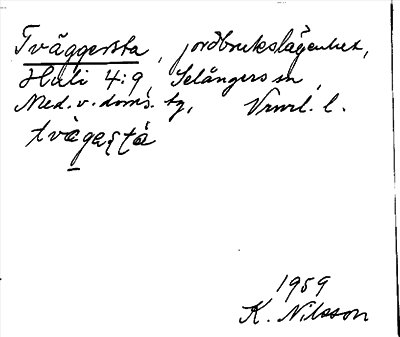 Tväggersta, jordbrukslägenhet,
Huli 4:9, Selångers sn,
Med. v. doms. tg, Vnrl. l.
1959
K. Nilsson